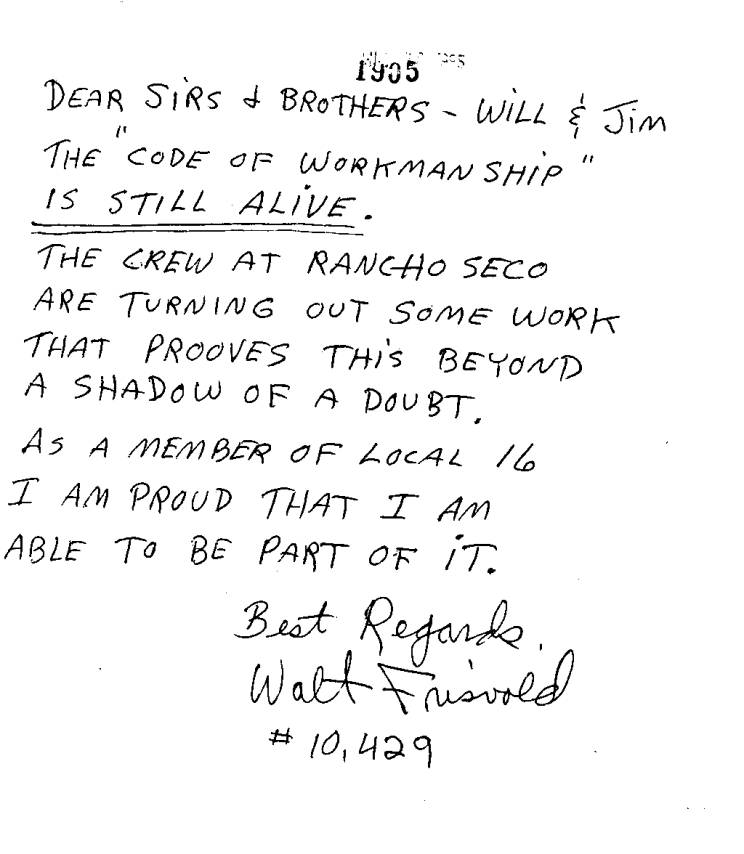 1905
DEAR SIRS & BROTHERS - WILL & JIM
THE "CODE OF WORKMANSHIP"
IS STILL ALIVE.
THE CREW AT RANCHO SECO
ARE TURNING OUT SOME WORK
THAT PROOVES THIS BEYOND
A SHADOW OF A DOUBT.
AS A MEMBER OF LOCAL 16
I AM PROUD THAT I AM
ABLE TO BE PART OF IT.
Best Regards,
Walt Frisvold
# 10,429